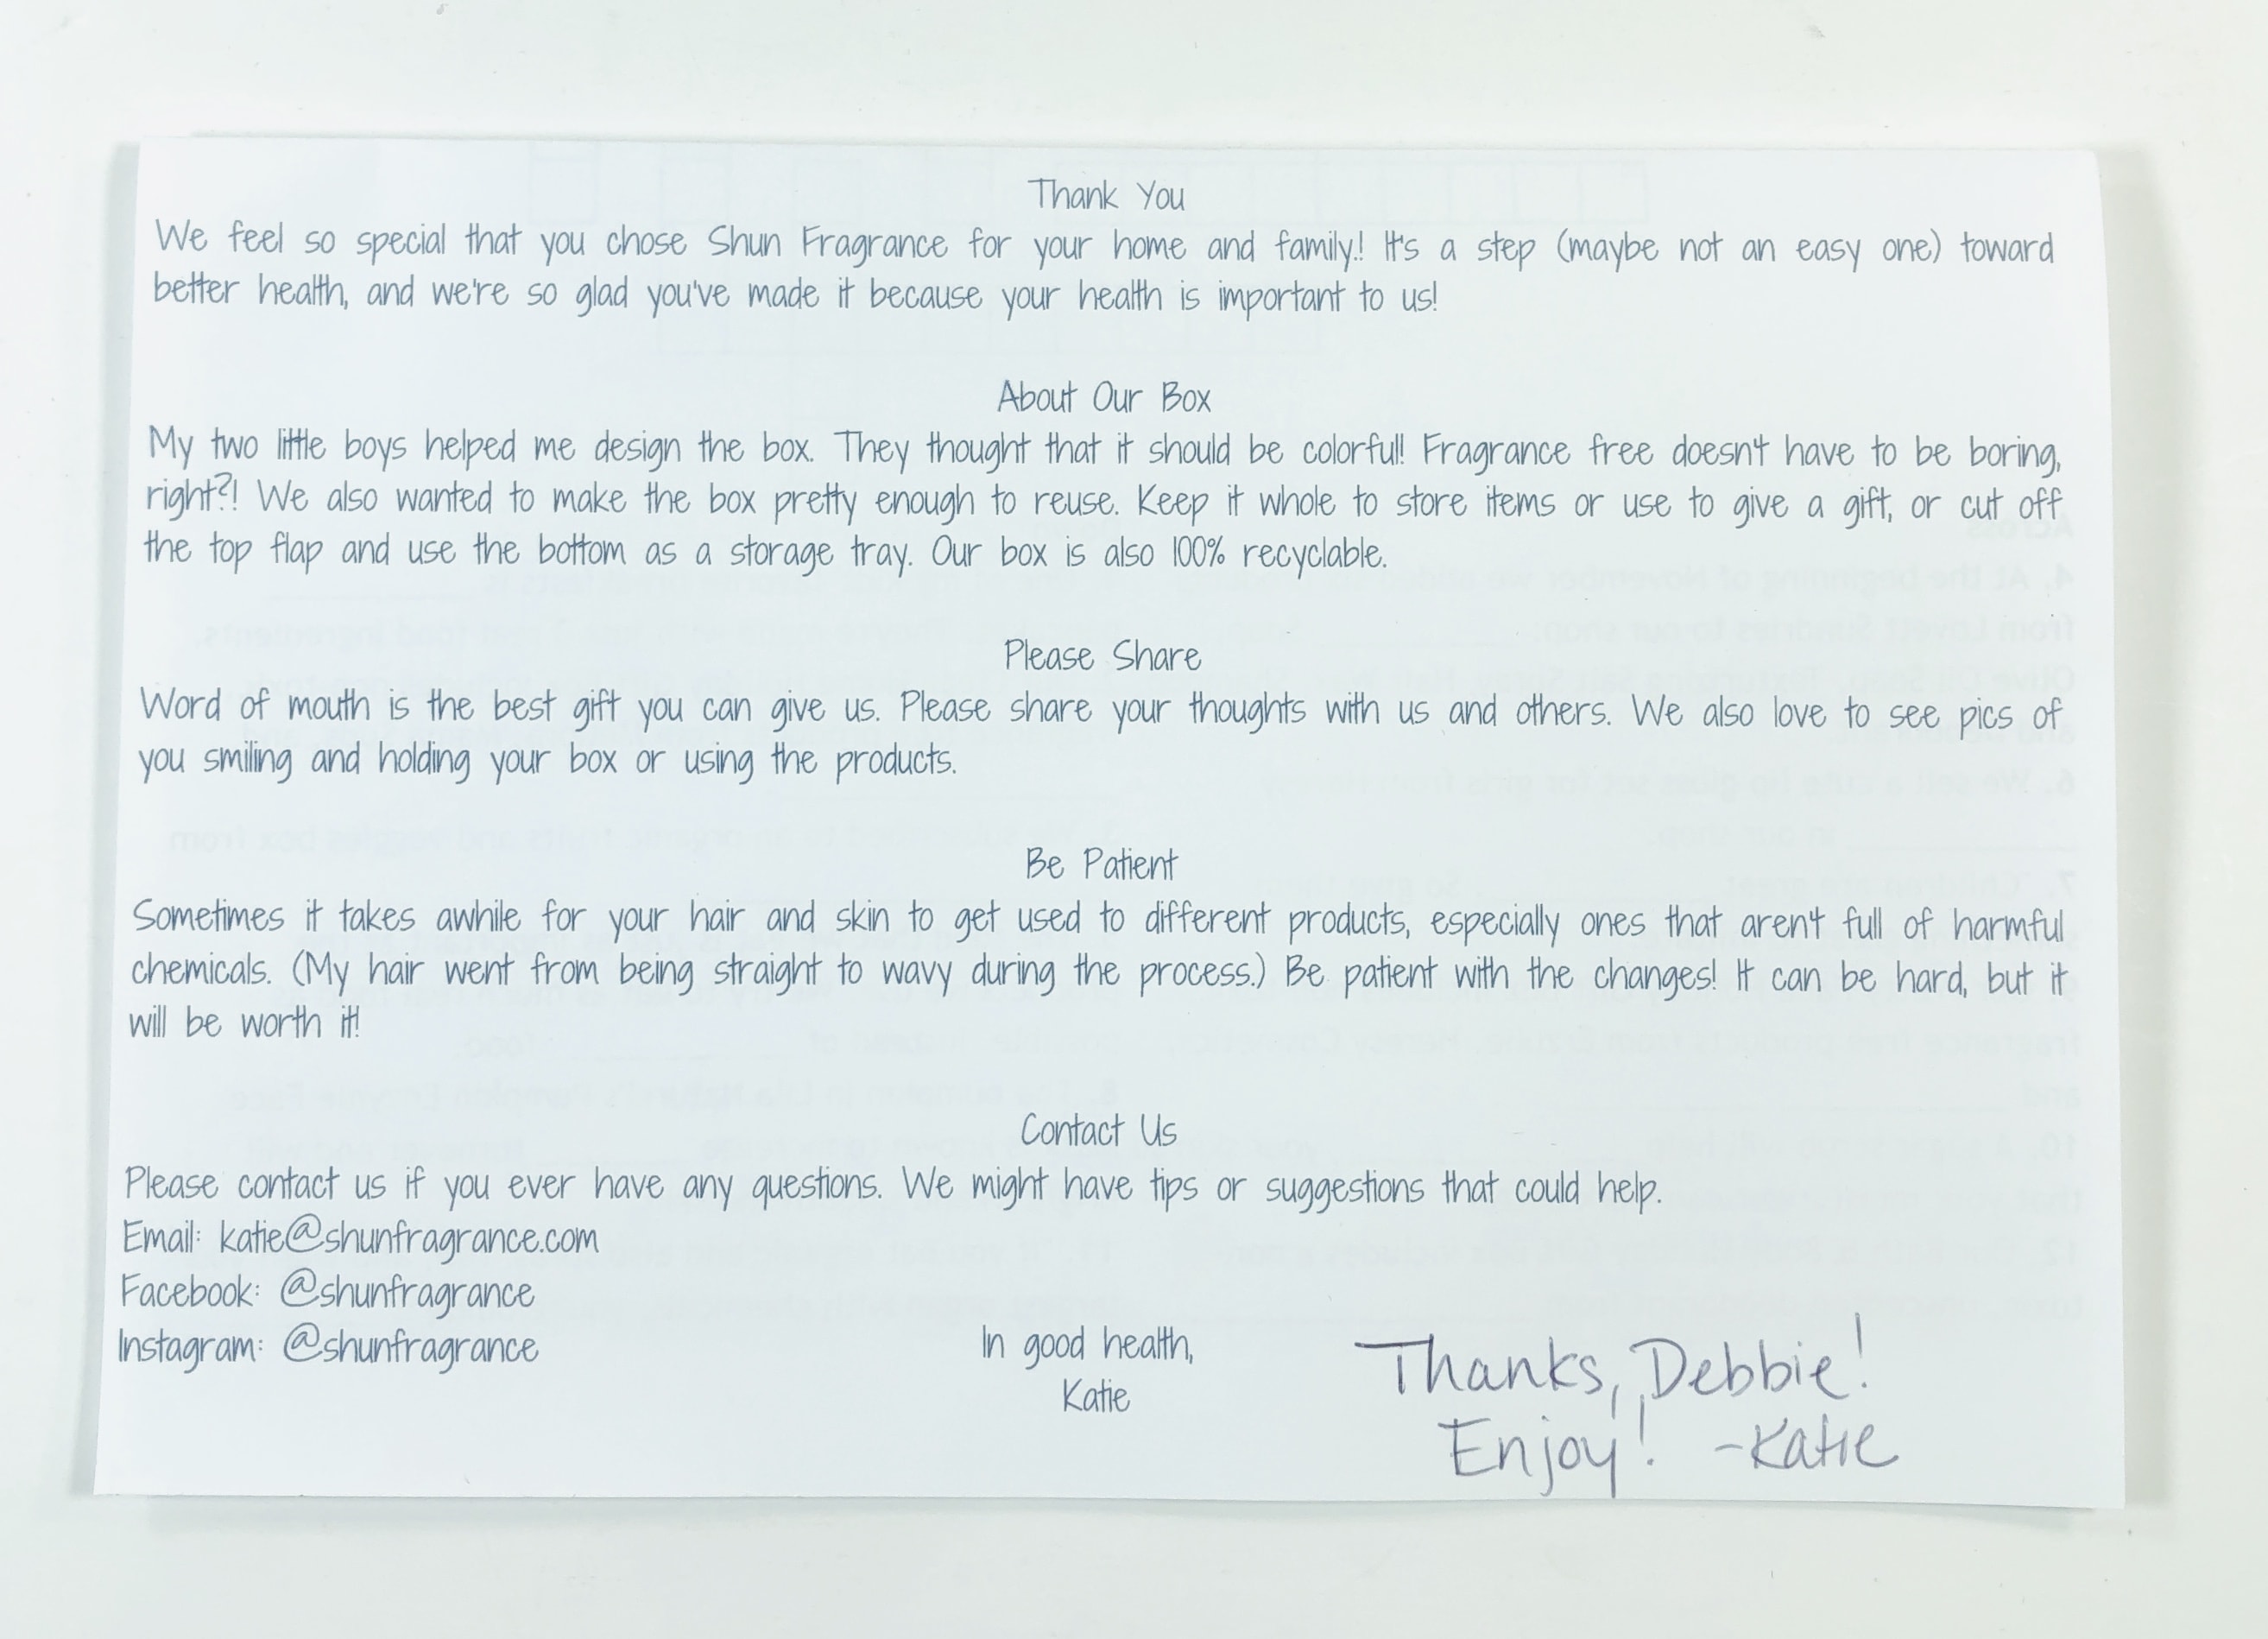 Thank You
We feel so special that you chose Shun Fragrance for your home and family! It's a step (maybe not an easy one) toward
better health, and we're so glad you've made it because your health is important to us!
About Our Box
My two little boys helped me design the box. They thought that it should be colorful! Fragrance free doesn't have to be boring,
right?! We also wanted to make the box pretty enough to reuse. Keep it whole to store items or use to give a gift, or cut off
the top flap and use the bottom as a storage tray. Our box is also 100% recyclable.
Please Share
Word of mouth is the best gift you can give us. Please share your thoughts with us and others. We also love to see pics of
you smiling and holding your box or using the products.
Be Patient
Sometimes it takes awhile for your hair and skin to get used to different products, especially ones that aren't full of harmful
chemicals. (My hair went from being straight to wavy during the process.) Be patient with the changes! It can be hard, but it
will be worth it!
Contact Us
Please contact us if you ever have any questions. We might have tips or suggestions that could help.
Email: katie@shunfragrance.com
Facebook: @shunfragrance
Instagram: @shunfragrance
In good health,
Katie
Thanks, Debbie!
Enjoy! -Katie